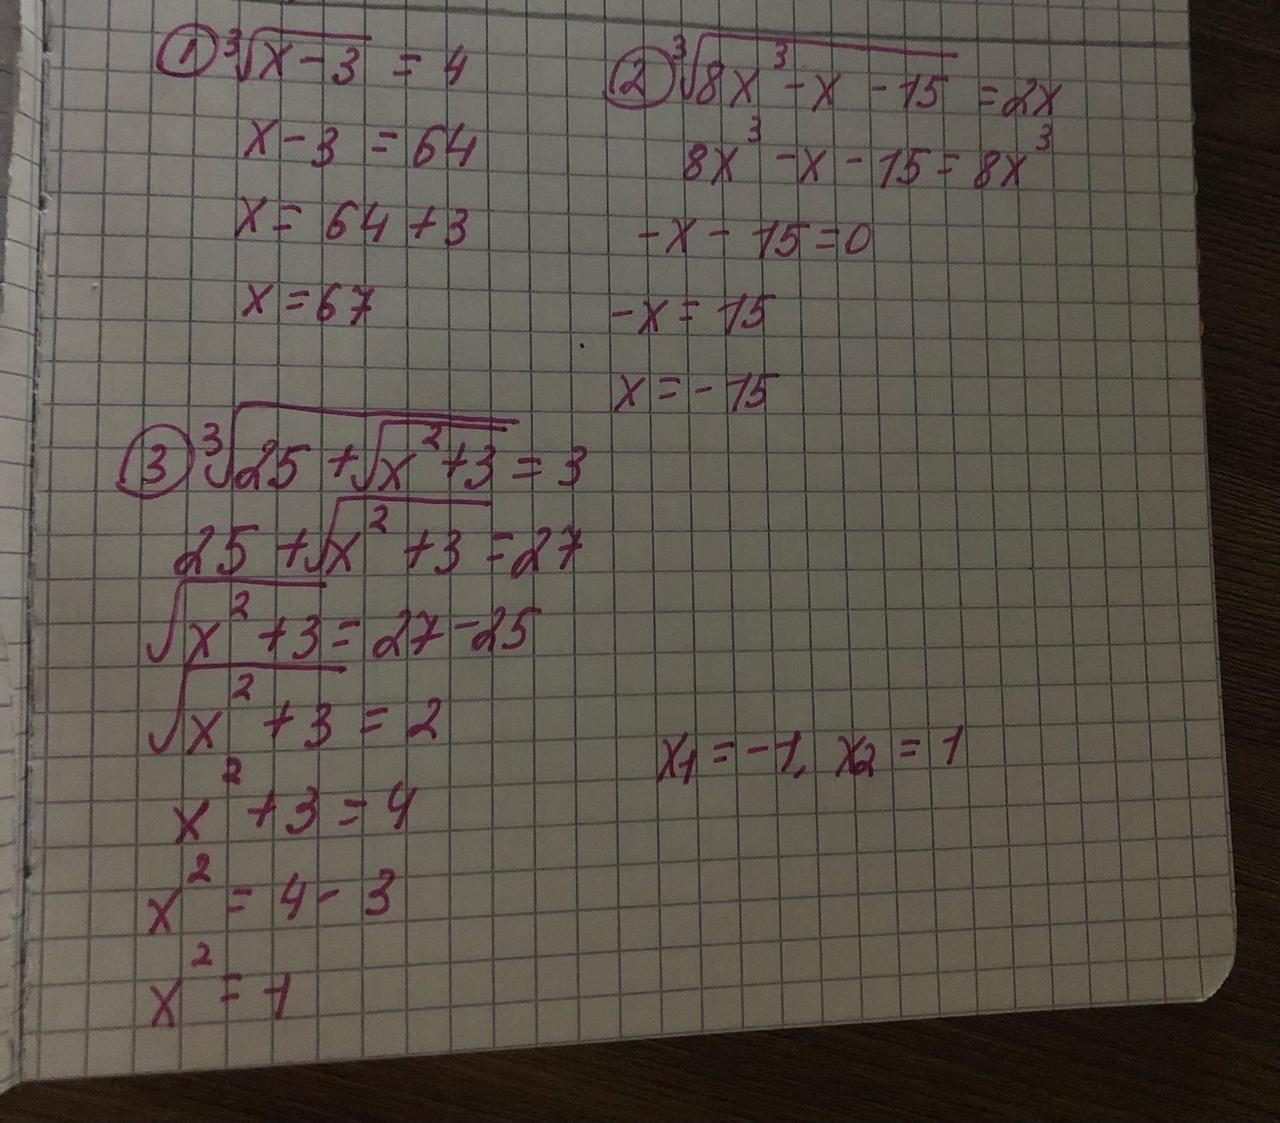 ① ∛(x-3) = 4
x-3 = 64
x = 64 + 3
x = 67
② ∛(8x³ - x - 15) = 2x
8x³ - x - 15 = 8x³
-x - 15 = 0
-x = 15
x = -15
③ ∛(25 + √(x² + 3)) = 3
25 + √(x² + 3) = 27
√(x² + 3) = 27 - 25
√(x² + 3) = 2
x² + 3 = 4
x² = 4 - 3
x² = 1
x₁ = -1, x₂ = 1